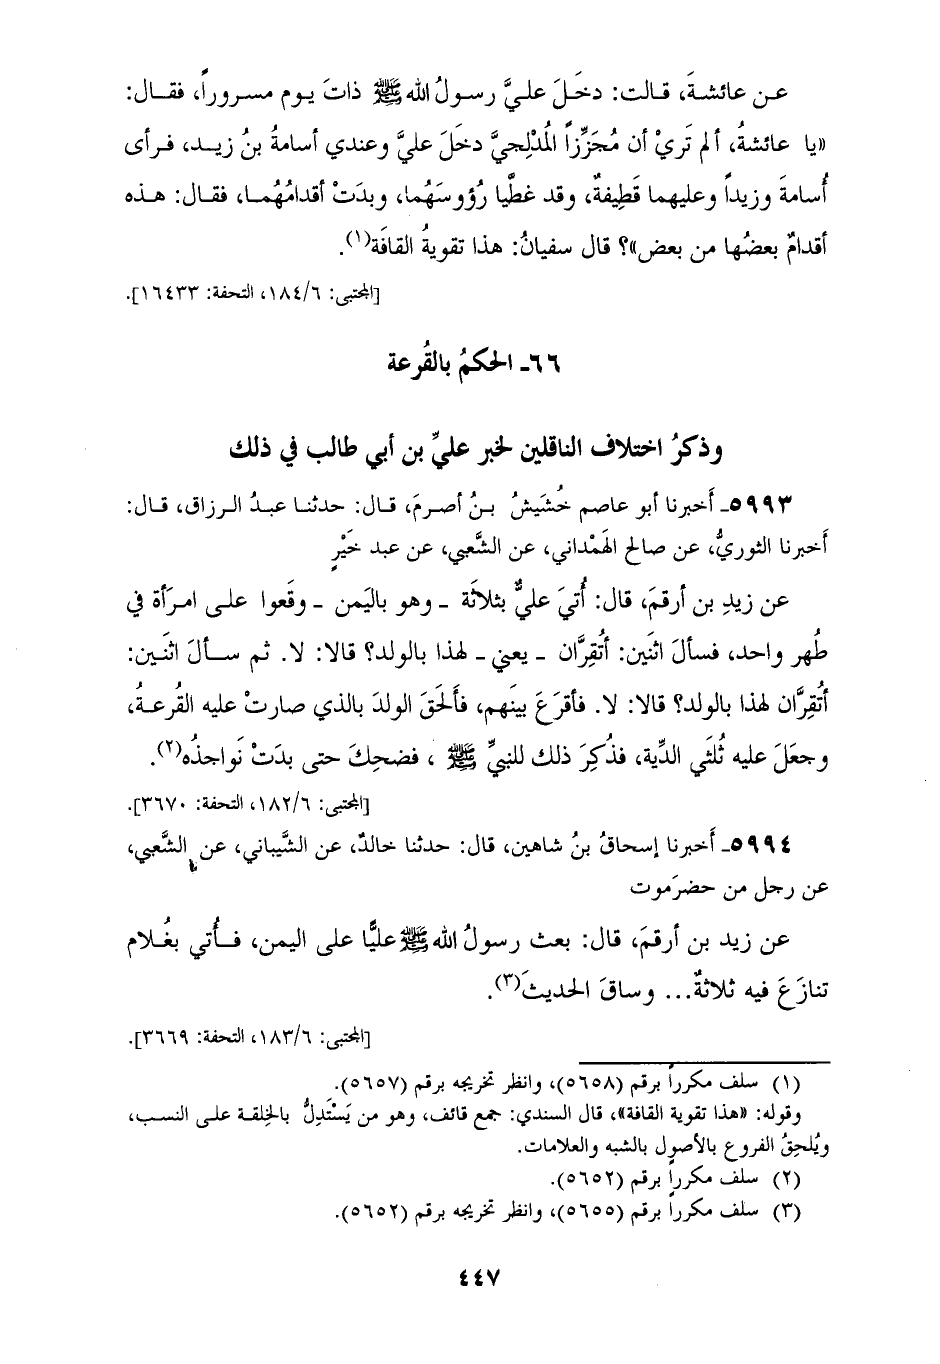 عن عائشةَ، قالت: دخَلَ عليَّ رسولُ الله ﷺ ذاتَ يوم مسروراً، فقال:
«يا عائشةُ، ألم تَرَيْ أن مُجَزِّزاً المُدْلِجيَّ دخَلَ عليَّ وعندي أسامةُ بنُ زيد، فرأى
أُسامةَ وزيداً وعليهما قَطِيفةٌ، وقد غطَّيا رُؤوسَهُما، وبدَتْ أقدامُهُما، فقال: هذه
أقدامٌ بعضُها من بعض»؟ قال سفيانُ: هذا تقويةُ القافَة(١).
[المجتبى: ١٨٤/٦، التحفة: ١٦٤٣٣].
٦٦- الحكمُ بالقُرعة
وذكرُ اختلاف الناقلين لخبر عليِّ بن أبي طالب في ذلك
٥٩٩٣- أَخبرنا أبو عاصم خُشَيشُ بنُ أصرمَ، قال: حدثنا عبدُ الرزاق، قال:
أخبرنا الثوريُّ، عن صالح الهَمْداني، عن الشَّعبي، عن عبد خَيْرٍ
عن زيدِ بن أرقمَ، قال: أُتيَ عليٌّ بثلاثَة - وهو باليَمن - وقَعوا على امرَأة في
طُهر واحد، فسألَ اثنَين: أتُقِرَّان - يعني - لهذا بالولد؟ قالا: لا. ثم سألَ اثنَين:
أتُقِرَّان لهذا بالولد؟ قالا: لا. فأقرَعَ بينَهم، فألحَقَ الولدَ بالذي صارتْ عليه القُرعةُ،
وجعَلَ عليه ثُلثَي الدِّية، فذُكِرَ ذلك للنبيِّ ﷺ ، فضحِكَ حتى بدَتْ نَواجذُه(٢).
[المجتبى: ١٨٢/٦، التحفة: ٣٦٧٠].
٥٩٩٤- أَخبرنا إسحاقُ بنُ شاهين، قال: حدثنا خالدٌ، عن الشَّيباني، عن الشَّعبي،
عن رجل من حضرَموت
عن زيد بن أرقمَ، قال: بعث رسولُ الله ﷺ عليًّا على اليمن، فأُتي بغُلام
تنازَعَ فيه ثلاثةٌ... وساقَ الحديثَ(٣).
[المجتبى: ١٨٣/٦، التحفة: ٣٦٦٩].
(١) سلف مكرراً برقم (٥٦٥٨)، وانظر تخريجه برقم (٥٦٥٧).
وقوله: «هذا تقوية القافة»، قال السندي: جمع قائف، وهو من يَسْتَدِلُّ بالخِلقة على النسب،
ويُلحِقُ الفروع بالأصول بالشبه والعلامات.
(٢) سلف مكرراً برقم (٥٦٥٢).
(٣) سلف مكرراً برقم (٥٦٥٥)، وانظر تخريجه برقم (٥٦٥٢).
٤٤٧